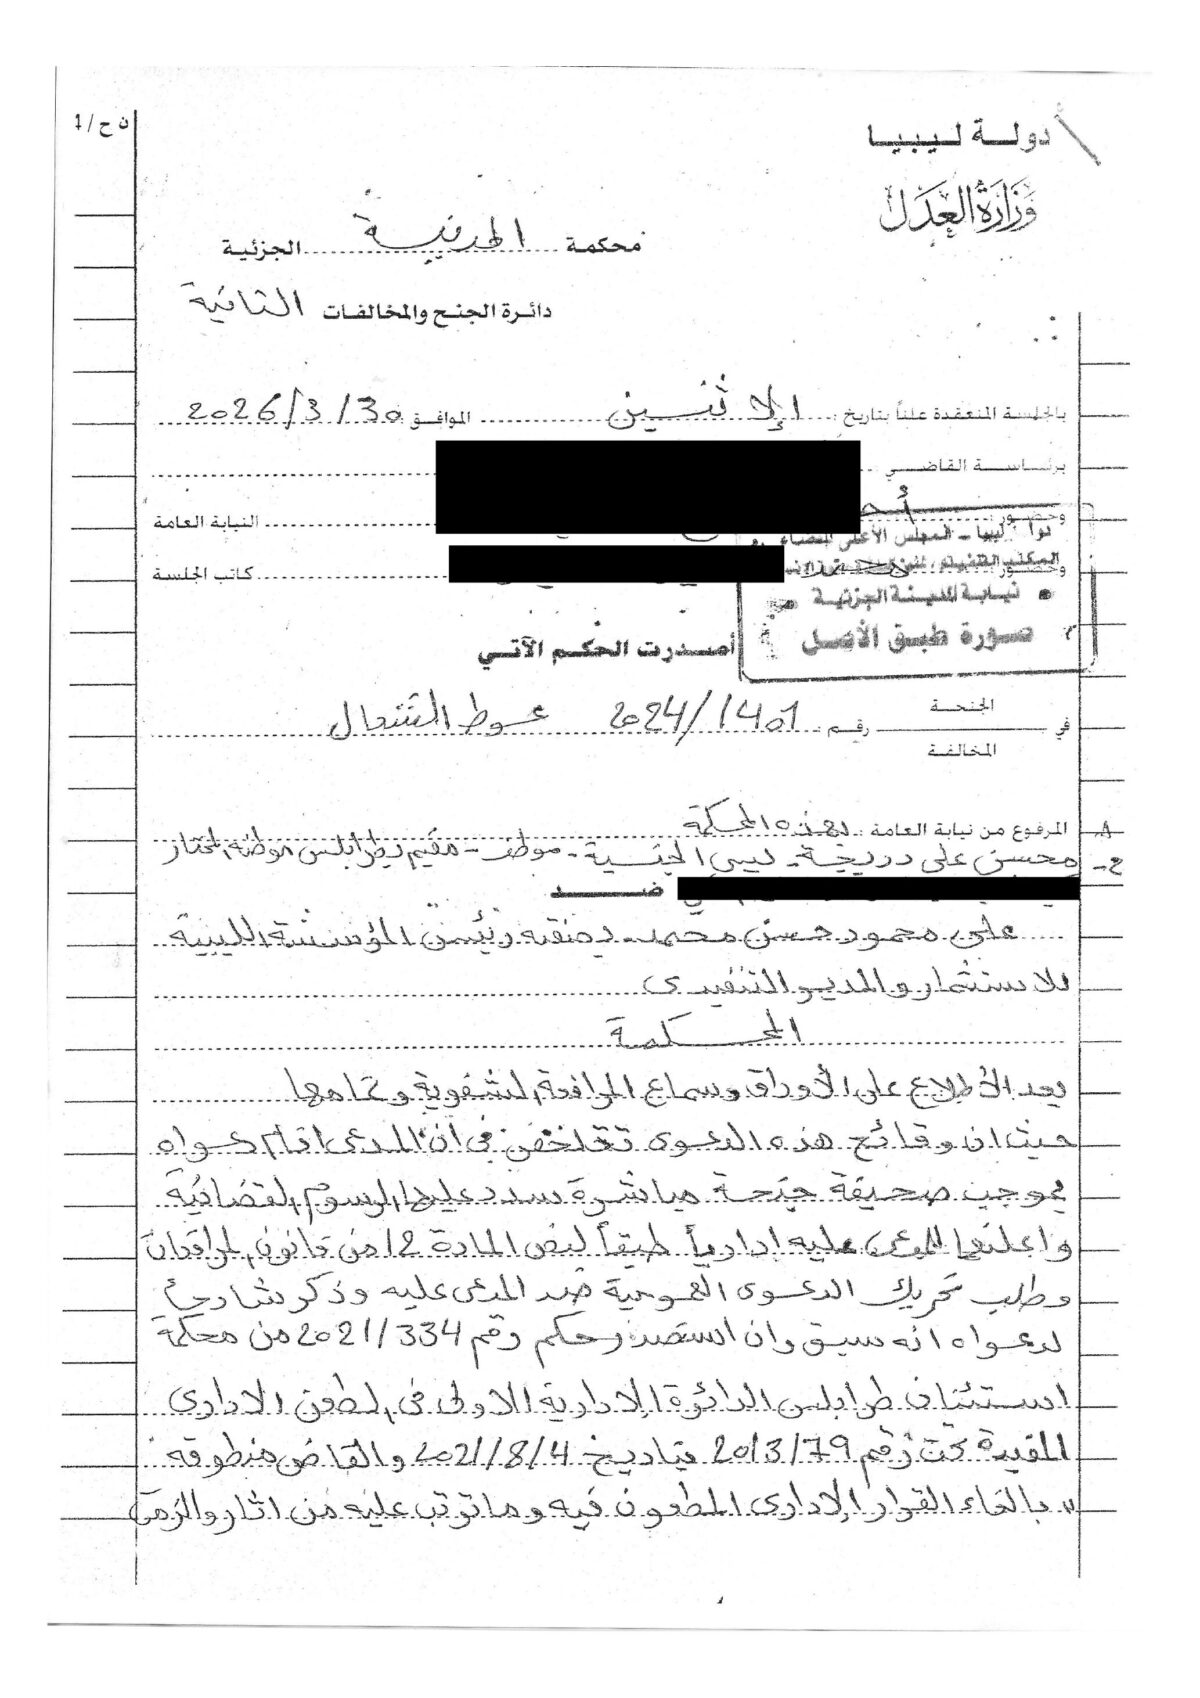 ن ح /1
دولة ليبيا
وزارة العدل
محكمة المدينة الجزئية
دائرة الجنح والمخالفات الثانية
بالجلسة المنعقدة علناً بتاريخ الإثنين الموافق 2026/3/30
برئاسة القاضي
وحضور النيابة العامة
وحضور كاتب الجلسة
ليبيا - المجلس الأعلى للقضاء
نيابة المدينة الجزئية
صورة طبق الأصل
أصدرت الحكم الآتي
الجنحة
في رقم 2024/1401 عوط الشعال
المخالفة
المرفوع من نيابة العامة بهذه المحكمة
محسن علي دريجة - ليبي الجنسية - موظف - مقيم بطرابلس موطنه المختار
ضد
علي محمود حسن محمد - بصفته رئيس المؤسسة الليبية
للاستثمار والمدير التنفيذي
المحكمة
بعد الأطلاع على الأوراق وسماع المرافعة الشفوية وتمامها
حيث ان وقائع هذه الدعوى تتلخص في أن المدعى اقام دعواه
بموجب صحيفة جنحة مباشرة سدد عليها الرسوم القضائية
واعلنها للمدعى عليه ادارياً طبقاً لنص المادة 12 من قانون المرافعات
وطلب تحريك الدعوى العمومية ضد المدعى عليه وذكر شارحاً
لدعواه انه سبق وان استصدر حكم رقم 2021/334 من محكمة
استئناف طرابلس الدائرة الإدارية الاولى في الطعن الادارى
المقيدة تحت رقم 2013/79 بتاريخ 2021/8/4 والقاض منطوقه:
" بالغاء القرار الإدارى المطعون فيه وما ترتب عليه من اثار والزمت